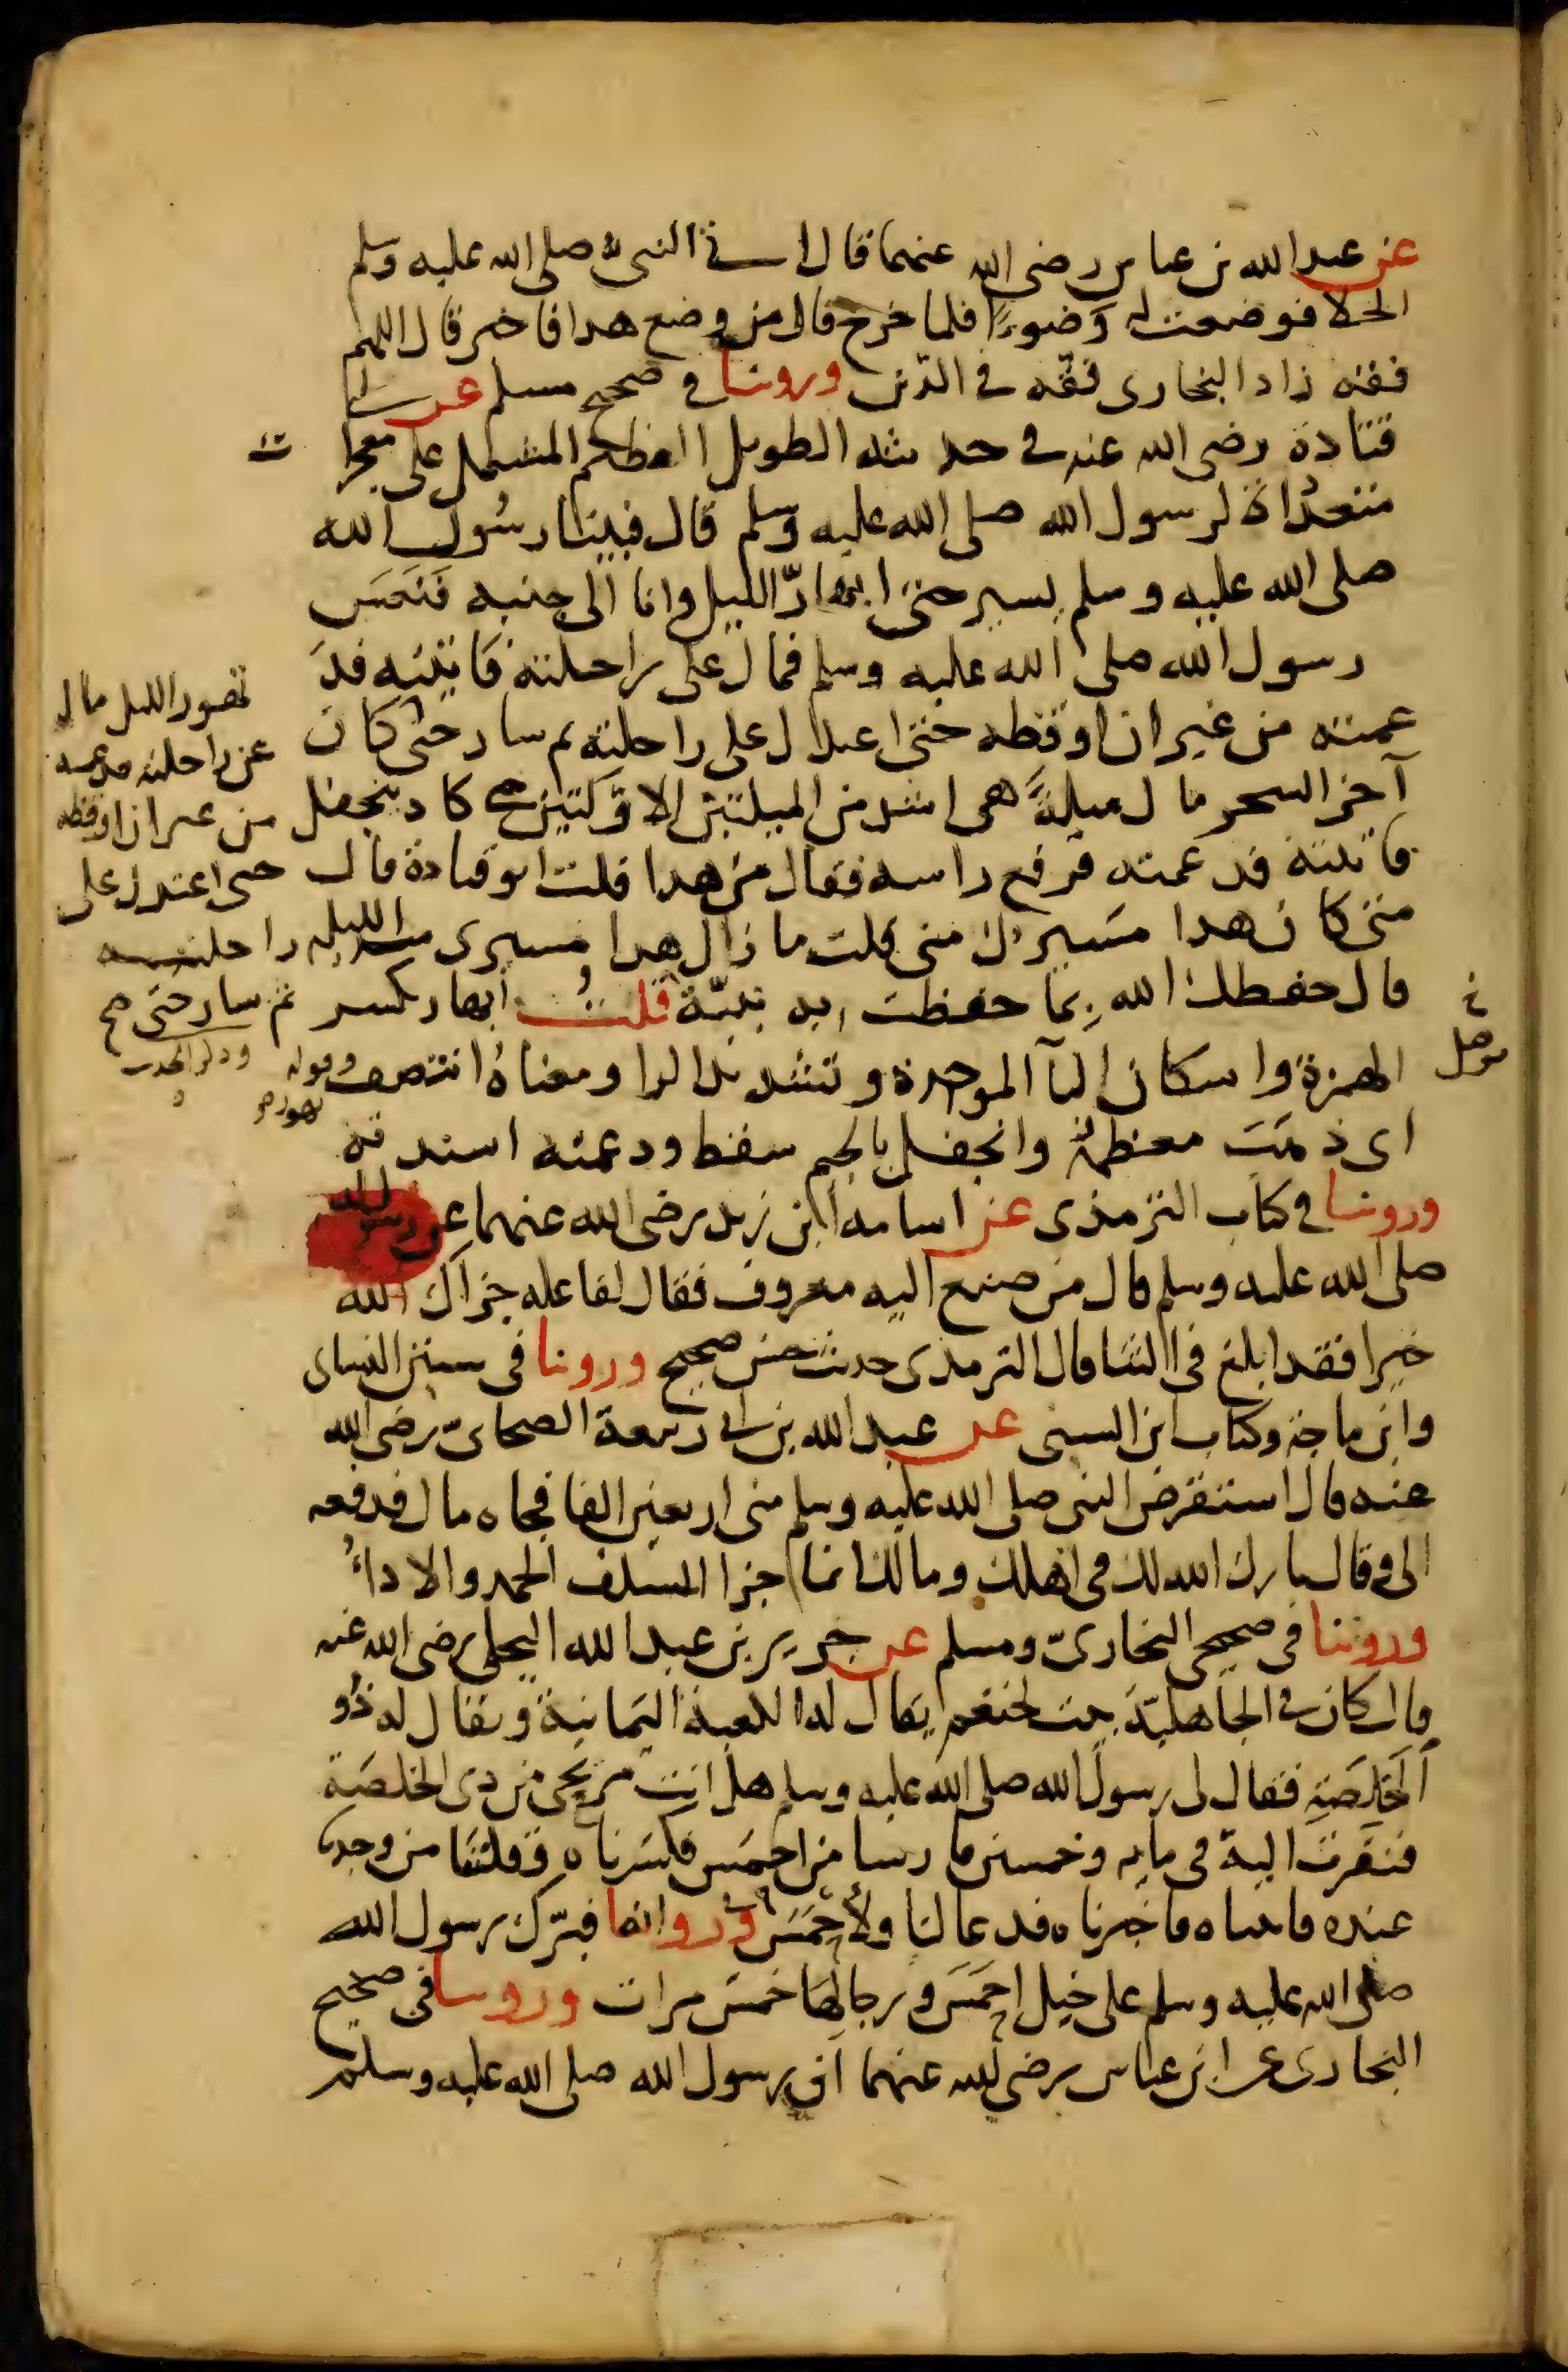 عن عبد الله بن عباس رضى الله عنهما قال اتى النبى صلى الله عليه وسلم
الخلا فوضعت له وَضوءًا فلما خرج قال من وضع هدا فاخبر قال اللهم
فقهه زاد البخارى فقّهه فى الدّين وروينا فى صحيح مسلم عن ابى
قتادة رضى الله عنه فى حديثه الطويل العظيم المشتمل على معجزا ت
متعددات لرسول الله صلى الله عليه وسلم قال فبينا رسُول الله
صلى الله عليه وسلم يسير حتى ابهارّ الليل وانا الى جنبه فَنَعَسَ
رسول الله صلى الله عليه وسلم فمال على راحلته فاتيته فدَ
عمته من غير ان اوقظه حتى اعتدل على راحلته ثم سار حتى كان
آخر السحر مال ميلةً هى اشد من الميلتين الاوّلتين حتى كاد ينجفل
فاتيته فدعمته فرفع راسه فقال من هدا قلت ابو قتادة قال
متى كان هدا مَسيرك منى قلت ما زال هدا مسيرى مند الليله
قال حفطك الله بما حفظت به نبيّه قلتُ ابهار بوصل
الهمزة واسكان البآ الموحدة وتشديد الرا ومعناهُ انتصف وقوله تهور
اى ذهَبَ معظمهُ وانجفل بالجيم سقط ودعمته اسندته
وروينا فى كتاب الترمذى عن اسامه ابن زيد رضى الله عنهما عن رسول الله
صلى الله عليه وسلم قال من صنع اليه معروف فقال لفاعله جزاك الله
خيرا فقد ابلغ فى الثنا قال الترمذى حديث حسن صحيح وروينا فى سنن النساى
وابن ماجه وكتاب ابن السنى عن عبد الله بن ابى ربيعة الصحابىّ رضى الله
عنه قال استقرض النبى صلى الله عليه وسلم منى اربعين الفا فجاه مال فدفعه
الى وقال بارك الله لك فى اهلك ومالك انما جزا السلف الحمد والاداءُ
وروينا فى صحيحى البخارىّ ومسلم عن جرير بن عبد الله البجلى رضى الله عنه
قال كان فى الجاهليّة بيت لخثعم يقال له الكعبة اليَمانية ويقال له ذُو
الخَلَصَةِ فقال لى رسول الله صلى الله عليه وسلم هل انت مريحى من دى الخلصَة
فنفرت اليه فى مايه وخمسين فارسا من احمَس فكسَرناه وقتلنَا من وجدنا
عنده فاتيناه فاخبرناه فدعا لنَا ولأحمَسَ وفى رواية فبرّك رسول الله
صلى الله عليه وسلم على خيل احمَسَ ورجالهَا خمسَ مرات وروينا فى صحيح
البخارى عن ابن عباس رضى الله عنهما ان رسول الله صلى الله عليه وسلم
تهور الليل مال
عن راحلته فدعمته
من غير ان اوقظه
حتى اعتدل على
راحلته
ثم سار حتى صح